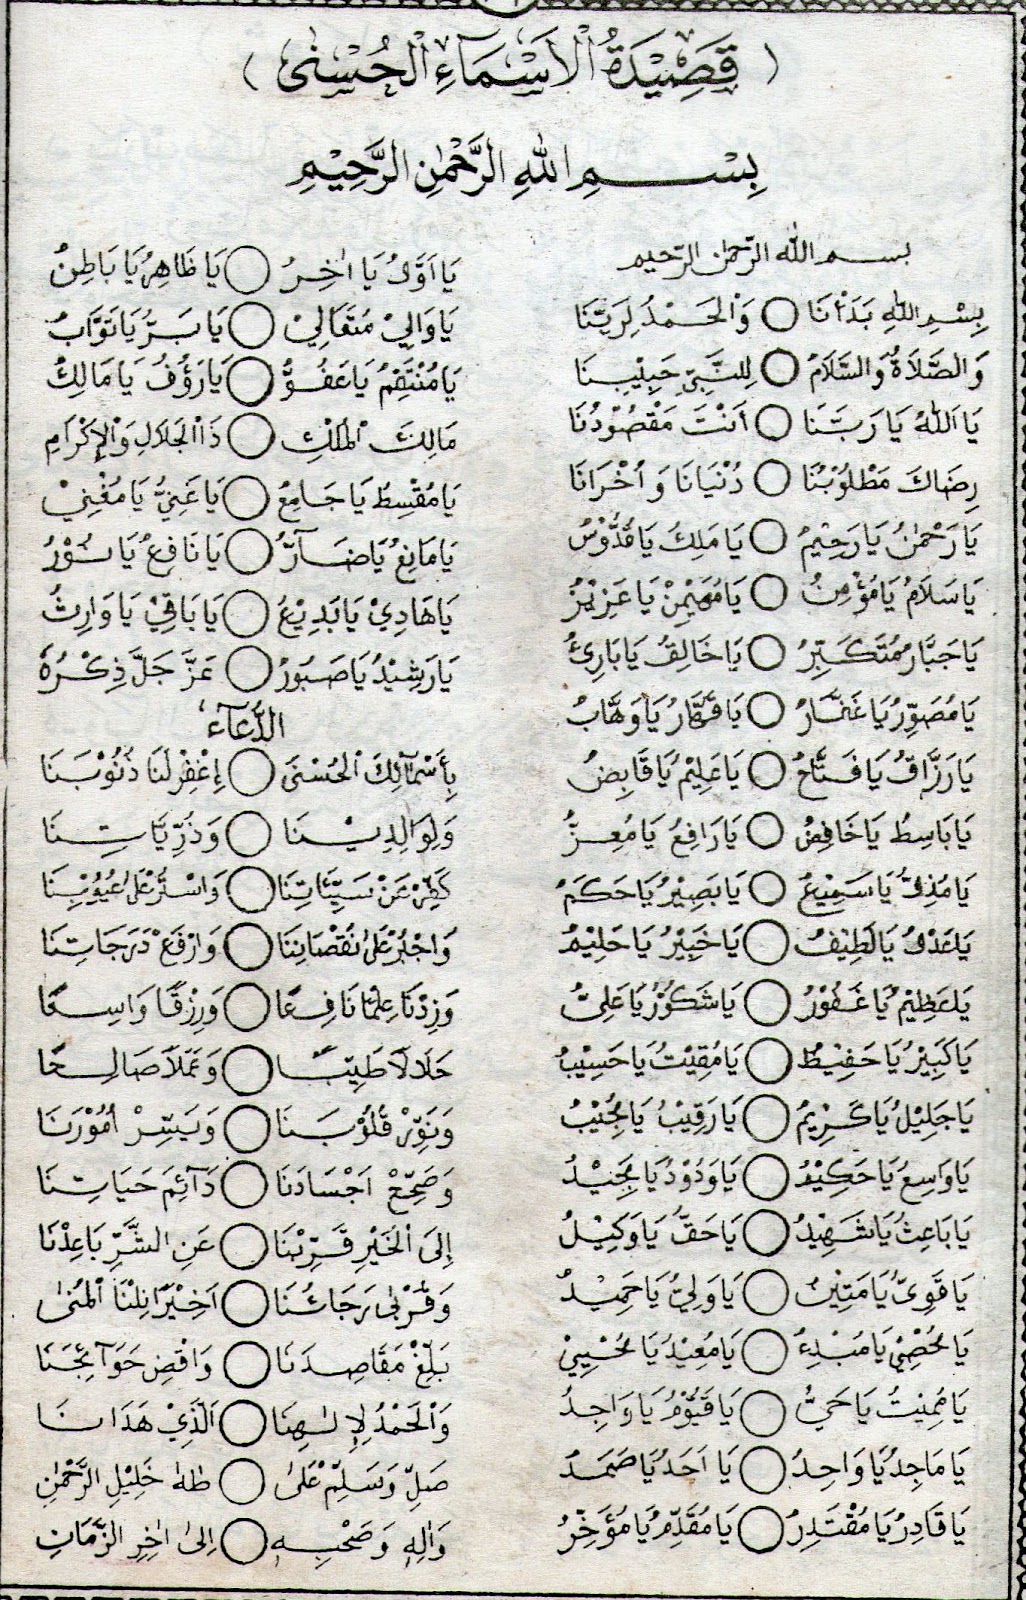 ( قَصِيْدَةُ الْاَسْمَآءِ الْحُسْنٰى )
بِسْــــمِ اللهِ الرَّحْمٰنِ الرَّحِيْمِ
بســم الله الرّحمٰن الرّحيم
بِسْمِ اللهِ بَدَأْنَا ○ وَالْحَمْدُ لِرَبِّنَا
وَالصَّلَاةُ وَالسَّلَامُ ○ لِلنَّبِيِّ حَبِيْبِنَا
يَا اَللهُ يَا رَبَّنَا ○ اَنْتَ مَقْصُوْدُنَا
رِضَاكَ مَطْلُوْبُنَا ○ دُنْيَانَا وَ اُخْرَانَا
يَا رَحْمٰنُ يَا رَحِيْمُ ○ يَا مَلِكُ يَا قُدُّوْسُ
يَا سَلَامُ يَا مُؤْمِنُ ○ يَا مُهَيْمِنْ يَا عَزِيْزُ
يَا جَبَّارُ مُتَكَبِّرُ ○ يَا خَالِقُ يَا بَارِئُ
يَا مُصَوِّرُ يَا غَفَّارُ ○ يَا قَهَّارُ يَا وَهَّابُ
يَا رَزَّاقُ يَا فَتَّاحُ ○ يَا عَلِيْمُ يَا قَابِضُ
يَا بَاسِطُ يَا خَافِضُ ○ يَا رَافِعُ يَا مُعِزُّ
يَا مُذِلُّ يَا سَمِيْعُ ○ يَا بَصِيْرُ يَا حَكَمُ
يَا عَدْلُ يَا لَطِيْفُ ○ يَا خَبِيْرُ يَا حَلِيْمُ
يَا عَظِيْمُ يَا غَفُوْرُ ○ يَا شَكُوْرُ يَا عَلِيُّ
يَا كَبِيْرُ يَا حَفِيْظُ ○ يَا مُقِيْتُ يَا حَسِيْبُ
يَا جَلِيْلُ يَا كَرِيْمُ ○ يَا رَقِيْبُ يَا مُجِيْبُ
يَا وَاسِعُ يَا حَكِيْمُ ○ يَا وَدُوْدُ يَا مَجِيْدُ
يَا بَاعِثُ يَا شَهِيْدُ ○ يَا حَقُّ يَا وَكِيْلُ
يَا قَوِيُّ يَا مَتِيْنُ ○ يَا وَلِيُّ يَا حَمِيْدُ
يَا مُحْصِيْ يَا مُبْدِئُ ○ يَا مُعِيْدُ يَا مُحْيِيْ
يَا مُمِيْتُ يَا حَيُّ ○ يَا قَيُّوْمُ يَا وَاجِدُ
يَا مَاجِدُ يَا وَاحِدُ ○ يَا اَحَدُ يَا صَمَدُ
يَا قَادِرُ يَا مُقْتَدِرُ ○ يَا مُقَدِّمُ يَا مُؤَخِّرُ
يَا اَوَّلُ يَا اٰخِرُ ○ يَا ظَاهِرُ يَا بَاطِنُ
يَا وَالِيْ مُتَعَالِيْ ○ يَا بَرُّ يَا تَوَّابُ
يَا مُنْتَقِمُ يَا عَفُوُّ ○ يَا رَؤُفُ يَا مَالِكُ
مَالِكَ الْمُلْكِ ○ ذَا الْجَلَالِ وَالْاِكْرَامِ
يَا مُقْسِطُ يَا جَامِعُ ○ يَا غَنِيُّ يَا مُغْنِيْ
يَا مَانِعُ يَا ضَآرُّ ○ يَا نَافِعُ يَا نُوْرُ
يَا هَادِيْ يَا بَدِيْعُ ○ يَا بَاقِيْ يَا وَارِثُ
يَا رَشِيْدُ يَا صَبُوْرُ ○ عَزَّ جَلَّ ذِكْرُهُ
الدُّعَآءُ
بِأَسْمَآئِكَ الْحُسْنَى ○ اِغْفِرْ لَنَا ذُنُوْبَنَا
وَلِوَالِدِيْــنَا ○ وَذُرِّيَّاتِــنَا
كَفِّرْ عَنْ سَيِّئَاتِنَا ○ وَاسْتُرْ عَلٰى عُيُوْبِنَا
وَاجْبُرْ عَلٰى نُقْصَانِنَا ○ وَارْفَعْ دَرَجَاتِنَا
وَزِدْنَا عِلْمًا نَافِعًا ○ وَرِزْقًا وَاسِــعًا
حَلَالًا طَيِّبًــا ○ وَعَمَلًا صَالِــحًا
وَنَوِّرْ قُلُوْبَــنَا ○ وَيَسِّرْ اُمُوْرَنَا
وَصَحِّحْ اَجْسَادَنَا ○ دَآئِمَ حَيَاتِــنَا
اِلَى الْخَيْرِ قَرِّبْنَا ○ عَنِ الشَّرِّ بَاعِدْنَا
وَقُرْبٰى رَجَائُنَا ○ اَخِيْرًا نِلْنَا الْمُنٰى
بَلِّغْ مَقَاصِدَنَا ○ وَاقْضِ حَوَآئِجَنَا
وَالْحَمْدُ لِاِلٰــهِنَا ○ اَلَّذِيْ هَدَانَــا
صَلِّ وَسَلِّمْ عَلٰى ○ طٰهٰ خَلِيْلِ الرَّحْمٰنِ
وَاٰلِهٖ وَصَحْبِــهٖ ○ اِلٰى اٰخِرِ الزَّمَانِ